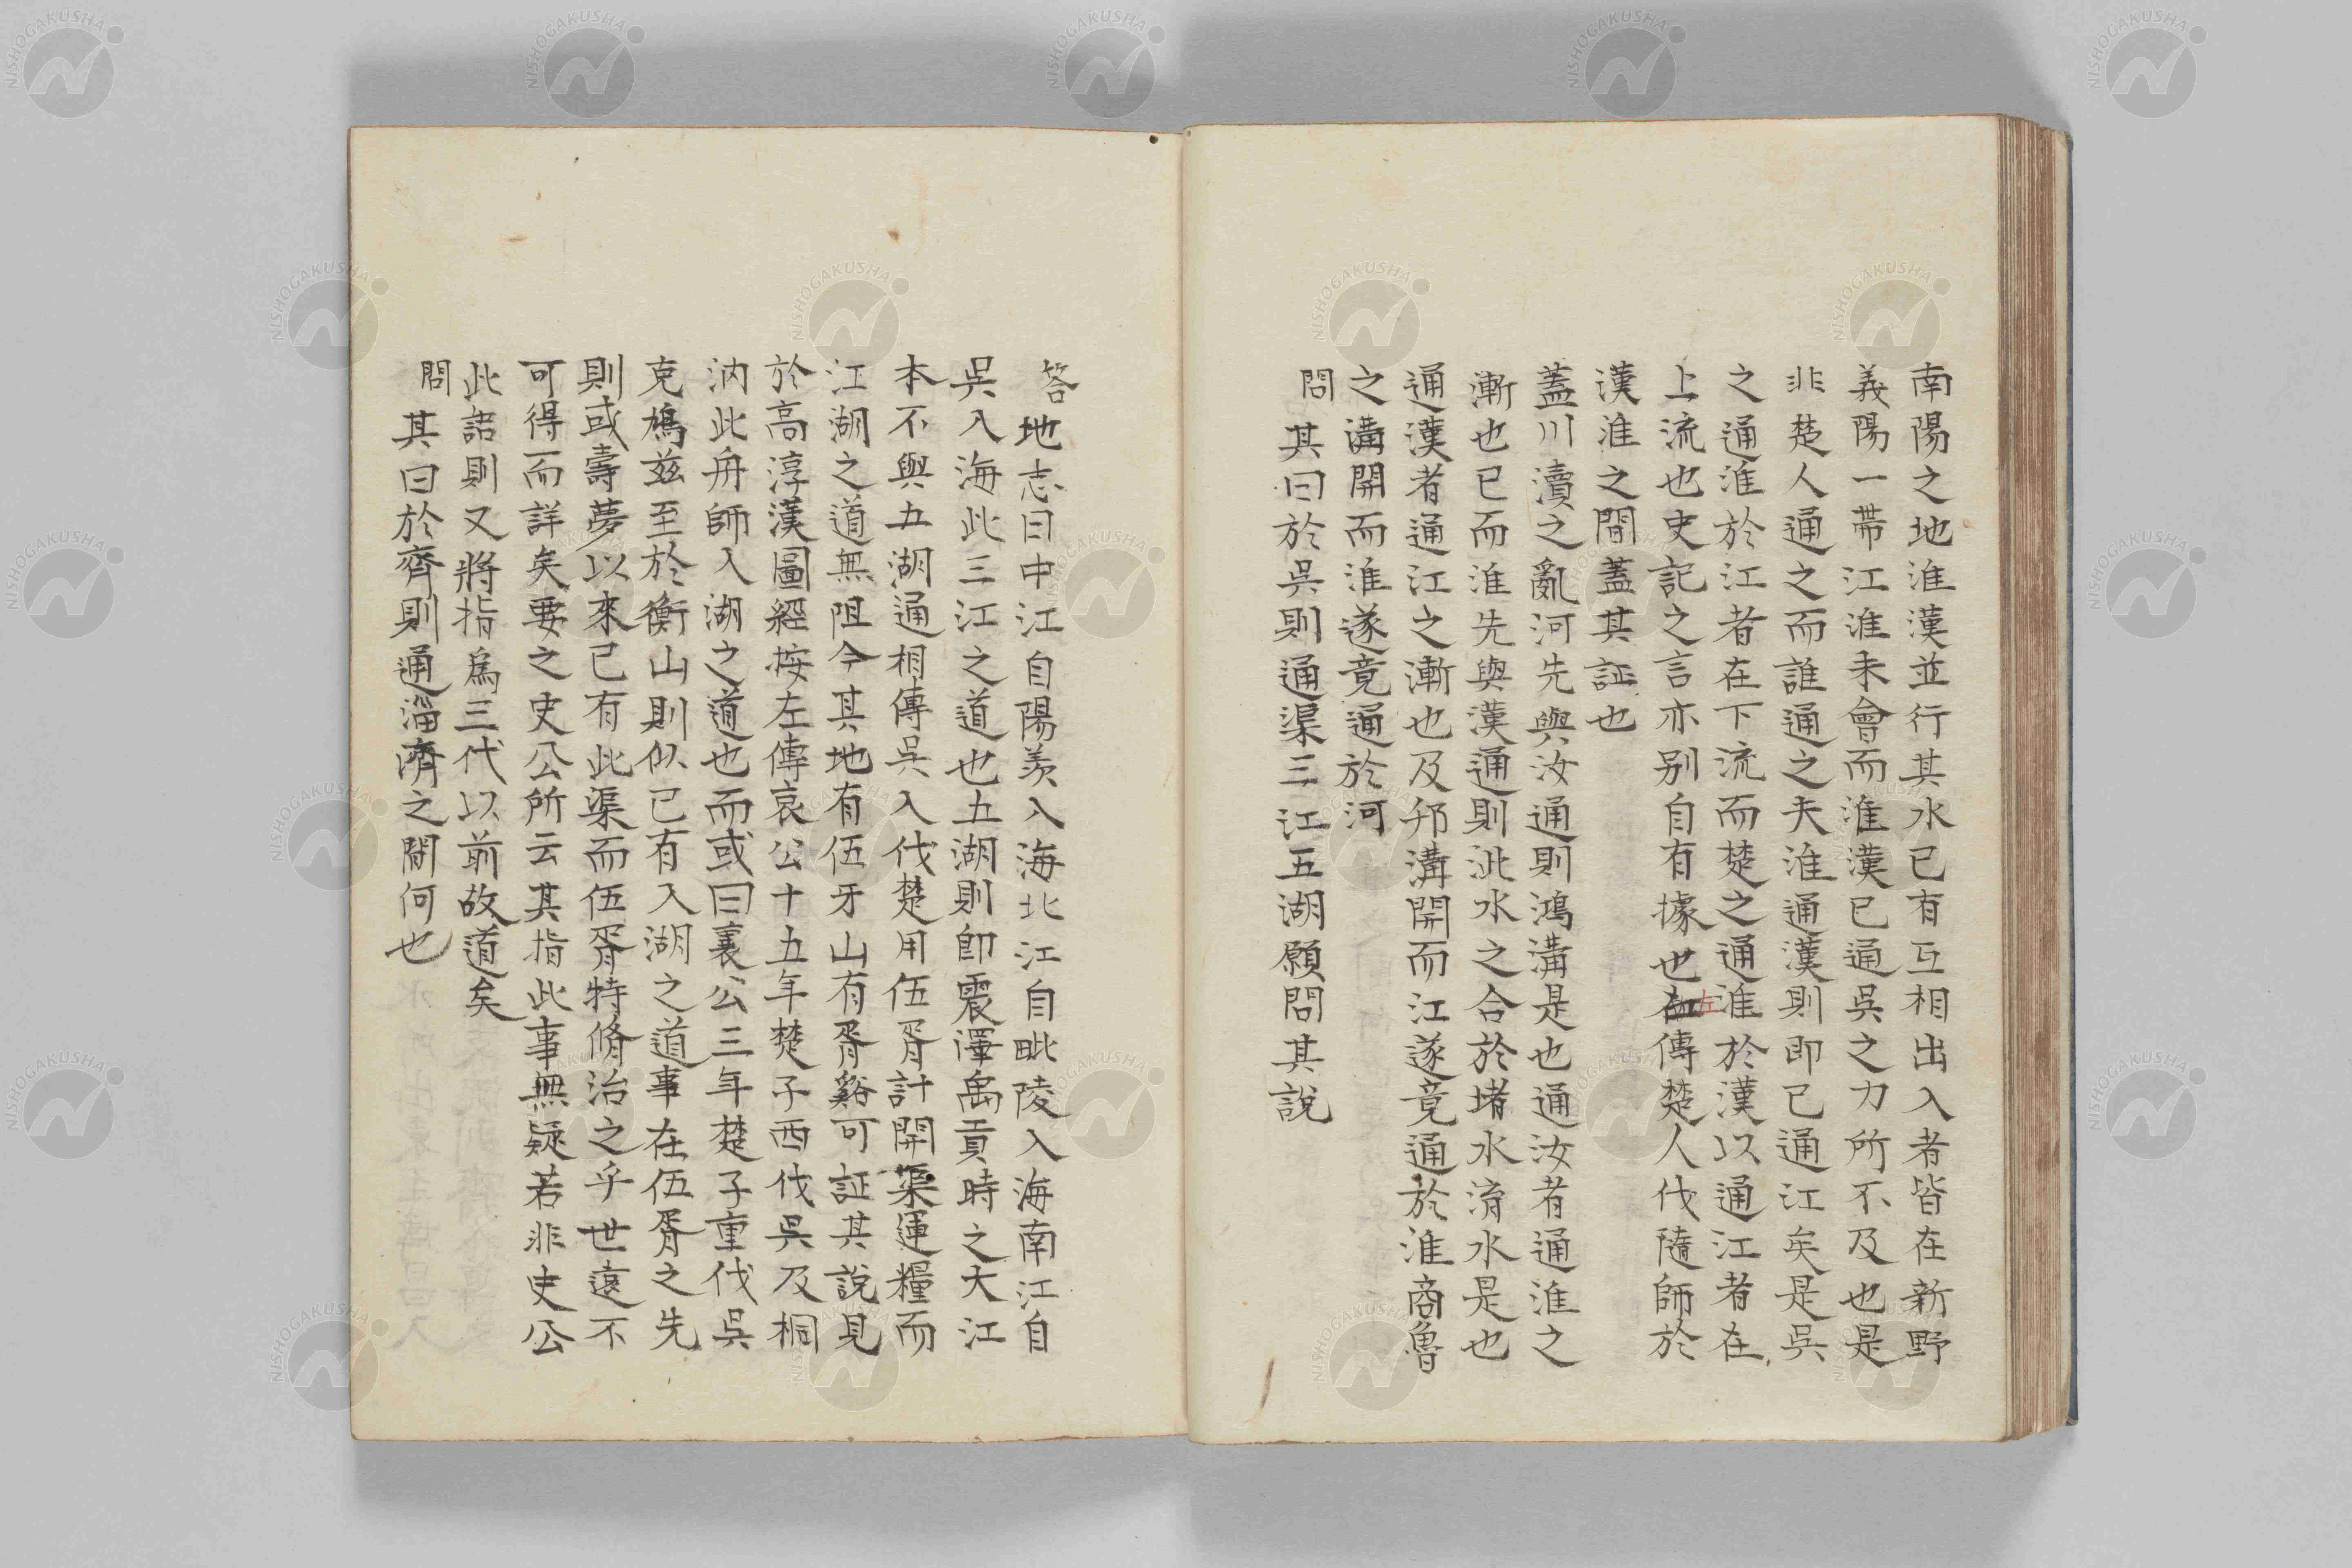 南陽之地淮漢並行其水已有互相出入者皆在新野
義陽一帶江淮未會而淮漢已通吳之力所不及也是
非楚人通之而誰通之夫淮通漢則即已通江矣是吳
之通淮於江者在下流而楚之通淮於漢以通江者在
上流也史記之言亦別自有據也左傳楚人伐隨師於
漢淮之間蓋其証也
蓋川瀆之亂河先與汝通則鴻溝是也通汝者通淮之
漸也已而淮先與漢通則泚水之合於堵水淯水是也
通漢者通江之漸也及邗溝開而江遂竟通於淮商魯
之溝開而淮遂竟通於河
問其曰於吳則通渠三江五湖願問其說
答地志曰中江自陽羨入海北江自毗陵入海南江自
吳入海此三江之道也五湖則卽震澤禹貢時之大江
本不與五湖通相傳吳入伐楚用伍胥計開渠運糧而
江湖之道無阻今其地有伍牙山有胥谿可証其說見
於高淳漢圖經按左傳哀公十五年楚子西伐吳及桐
汭此舟師入湖之道也而或曰襄公三年楚子重伐吳
克鳩茲至於衡山則似已有入湖之道事在伍胥之先
則或壽夢以來已有此渠而伍胥特脩治之乎世遠不
可得而詳矣要之史公所云其指此事無疑若非史公
此語則又將指爲三代以前故道矣
問其曰於齊則通淄濟之間何也